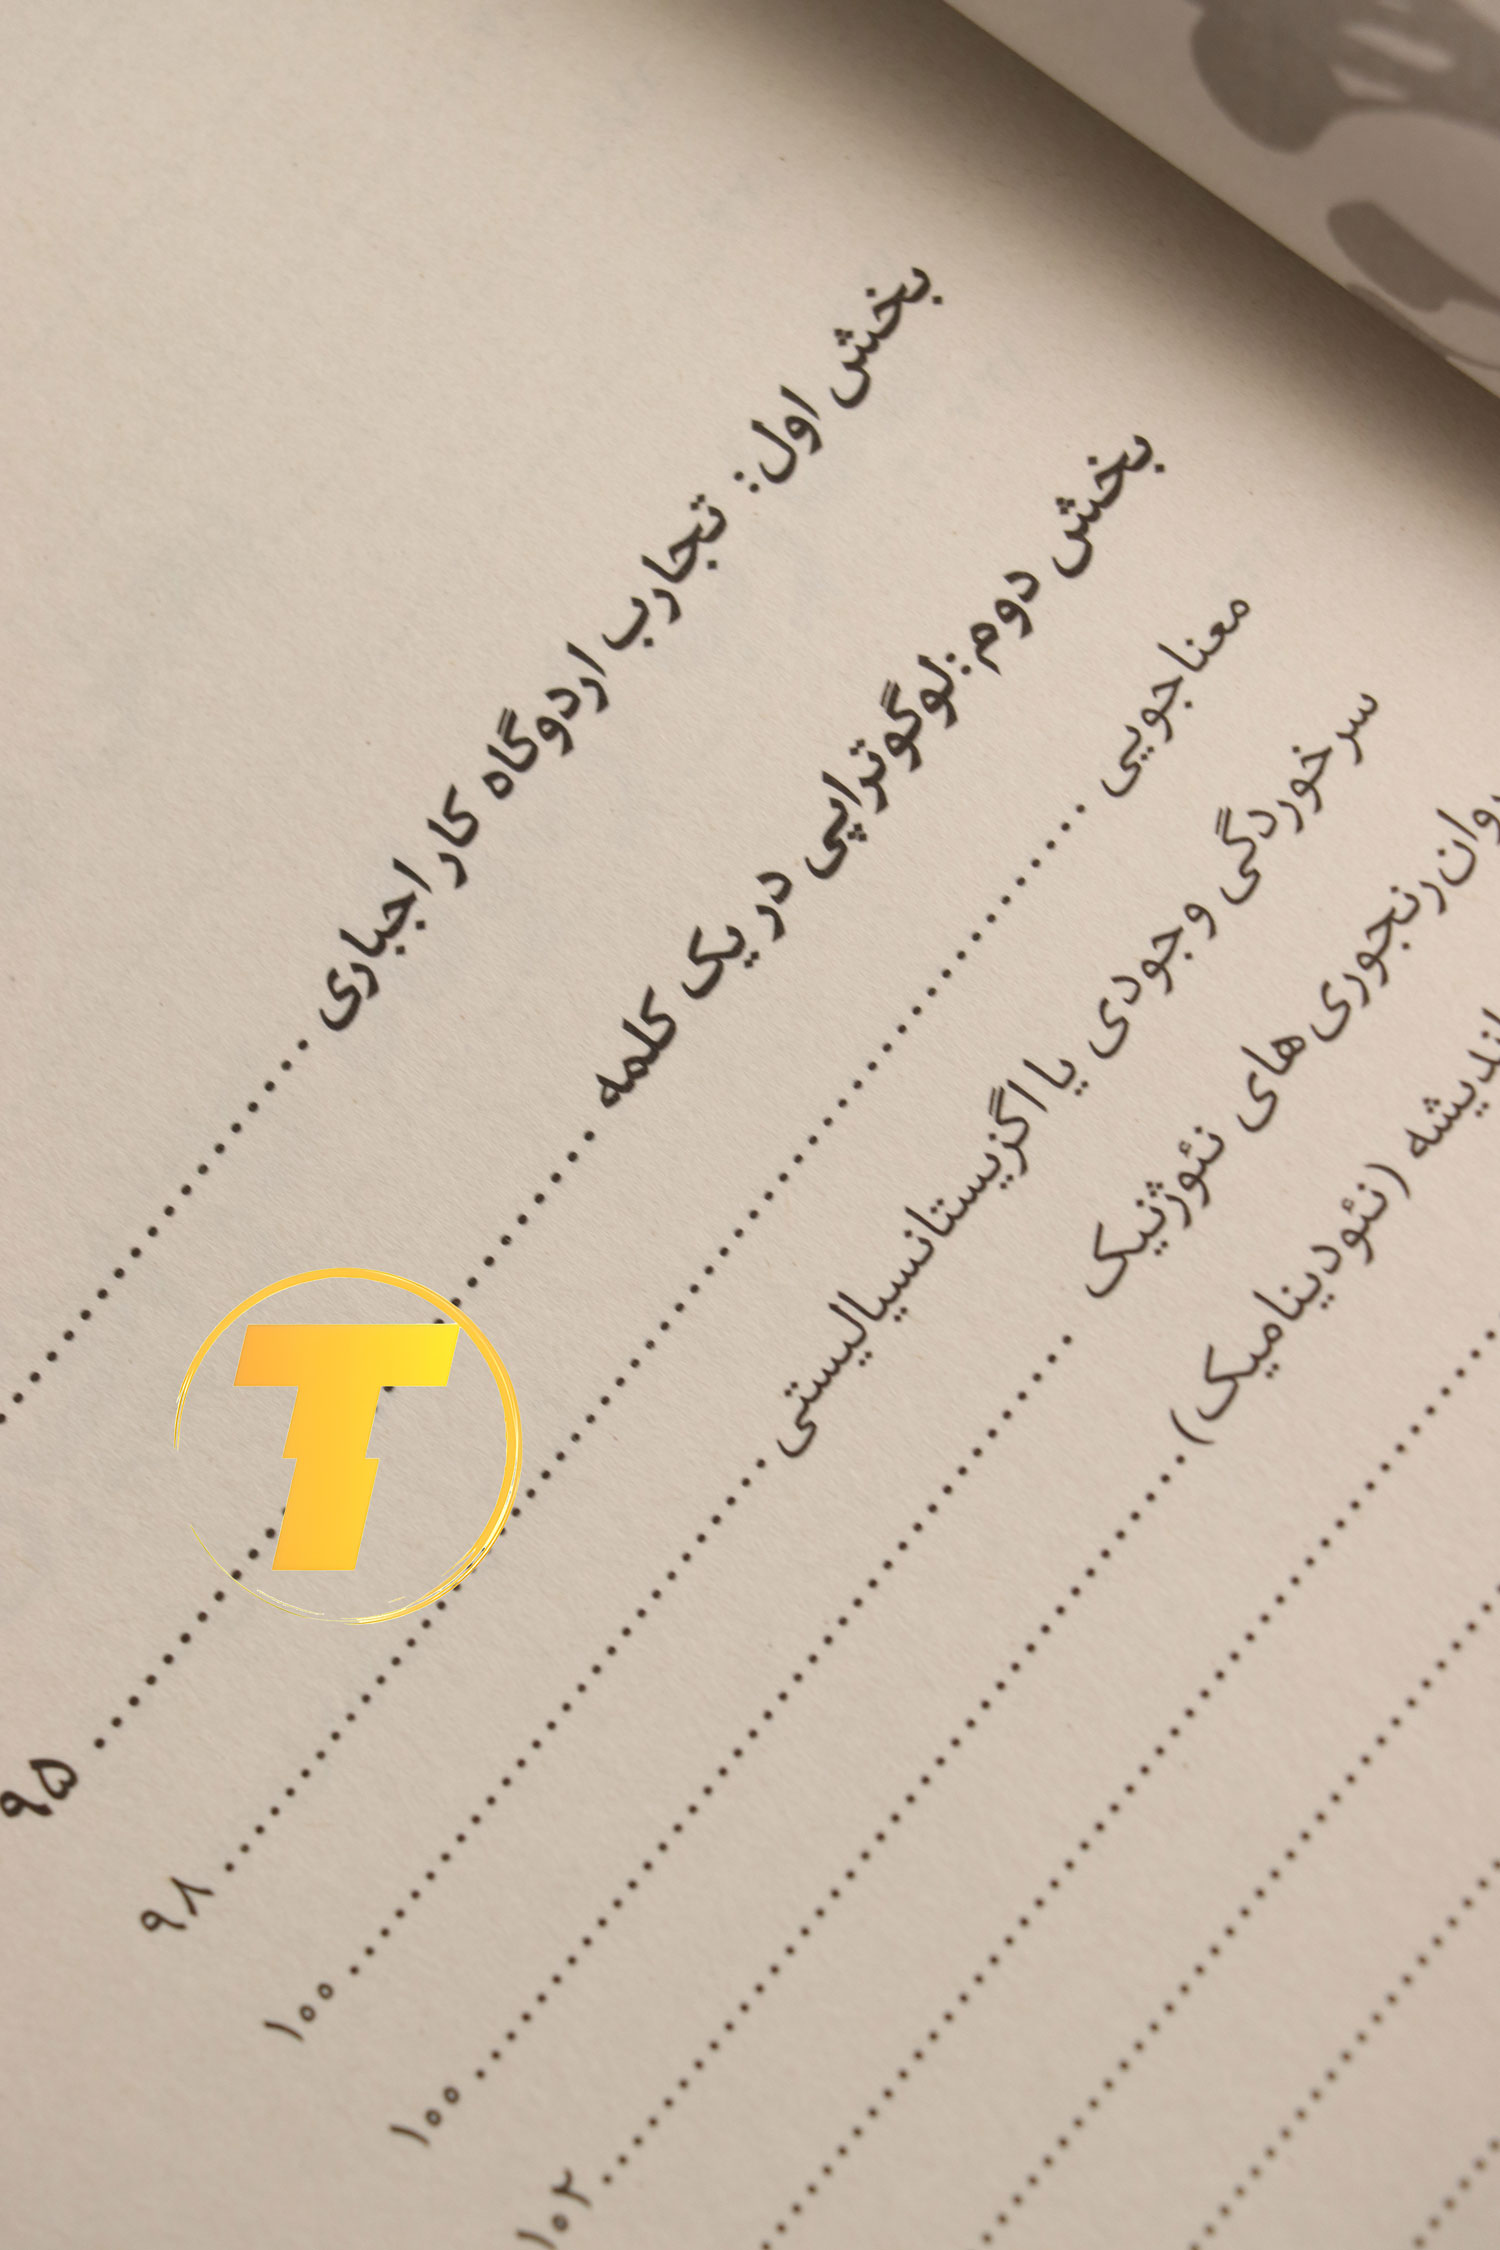 بخش اول: تجارب اردوگاه کار اجباری ..........
بخش دوم: لوگوتراپی در یک کلمه .......... ۹۵
معناجویی .......... ۹۸
سرخوردگی وجودی یا اگزیستانسیالیستی .......... ۱۰۰
روان‌رنجوری های نئوژنیک .......... ۱۰۰
اندیشه (نئودینامیک) .......... ۱۰۲
T